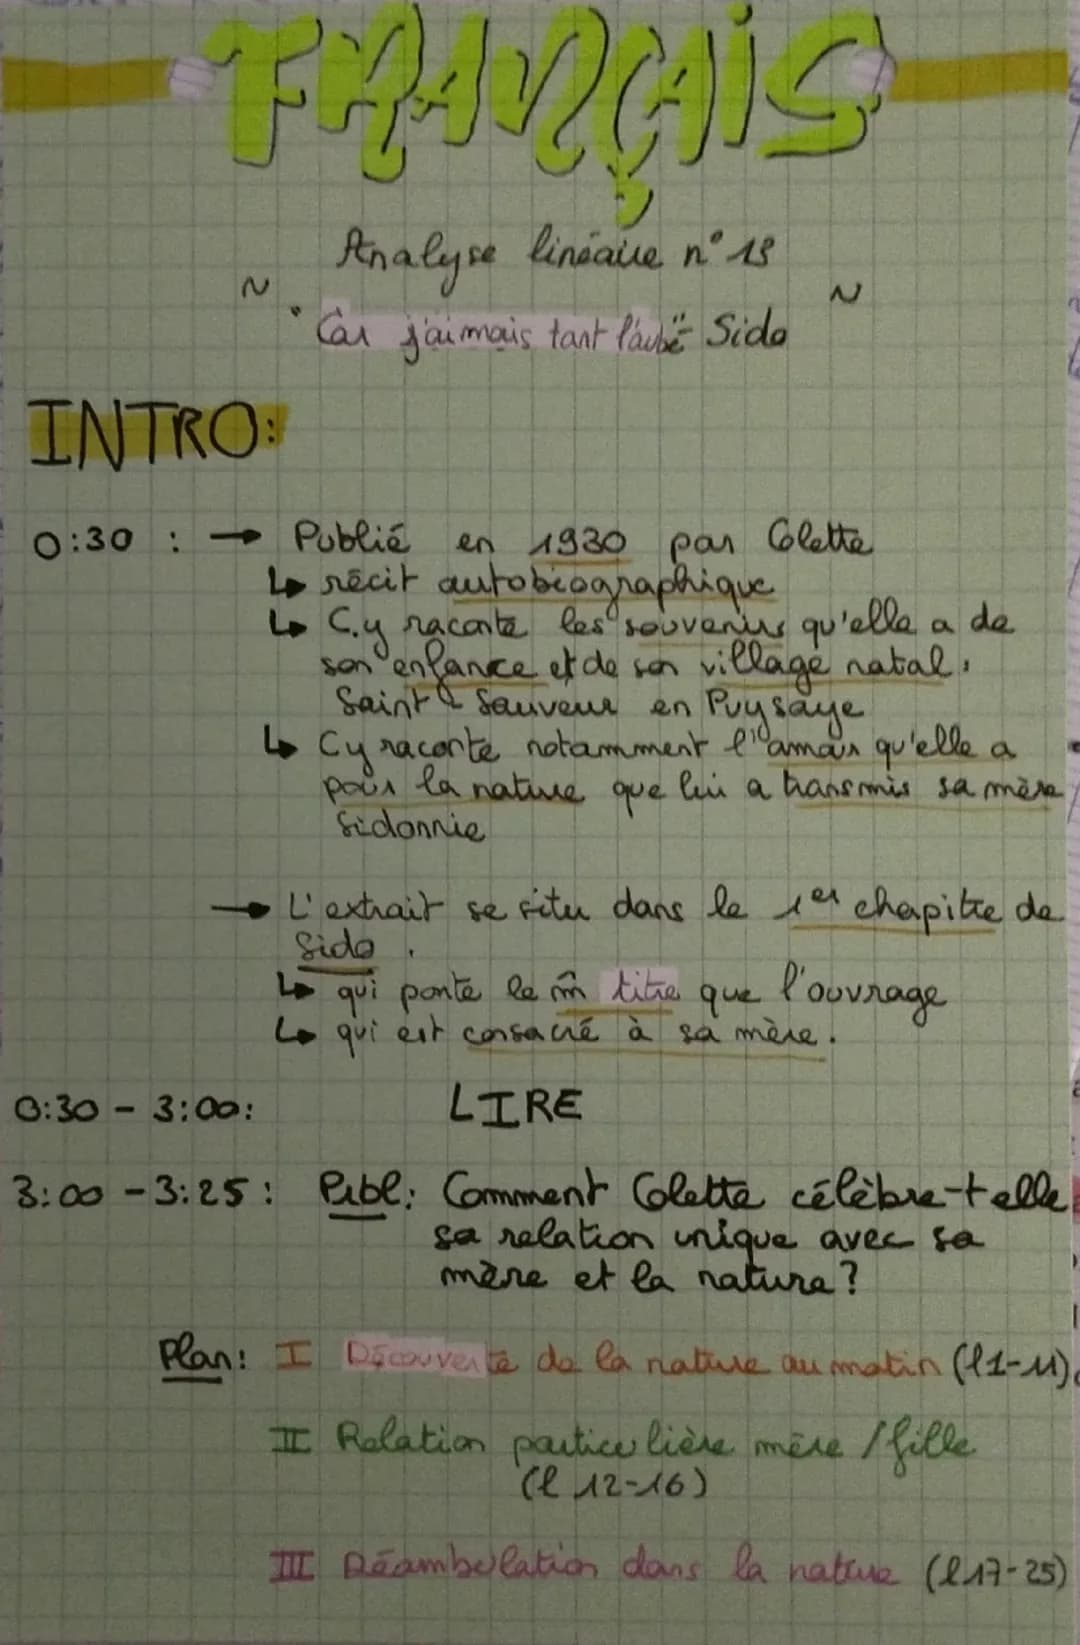 FRANÇAIS
Analyse linéaire n° 13
~ ~
"Car j'aimais tant l'aube" - Sido
INTRO:
0:30 : → Publié en 1930 par Colette
↳ récit autobiographique
↳ C.y raconte les souvenirs qu'elle a de
son enfance et de son village natal :
Saint Sauveur en Puysaye
↳ C y raconte notamment l'amour qu'elle a
pour la nature que lui a transmis sa mère
Sidonnie
→ L'extrait se situ dans le 1er chapitre de
Sido.
↳ qui porte le m̂ titre que l'ouvrage
↳ qui est consacré à sa mère.
0:30 - 3:00: LIRE
3:00 - 3:25: Pibl: Comment Colette célèbre-t elle
sa relation unique avec sa
mère et la nature?
Plan: I Découverte de la nature au matin (l1-11)
II Relation particulière mère / fille
(l 12-16)
III Déambulation dans la nature (l17-25)